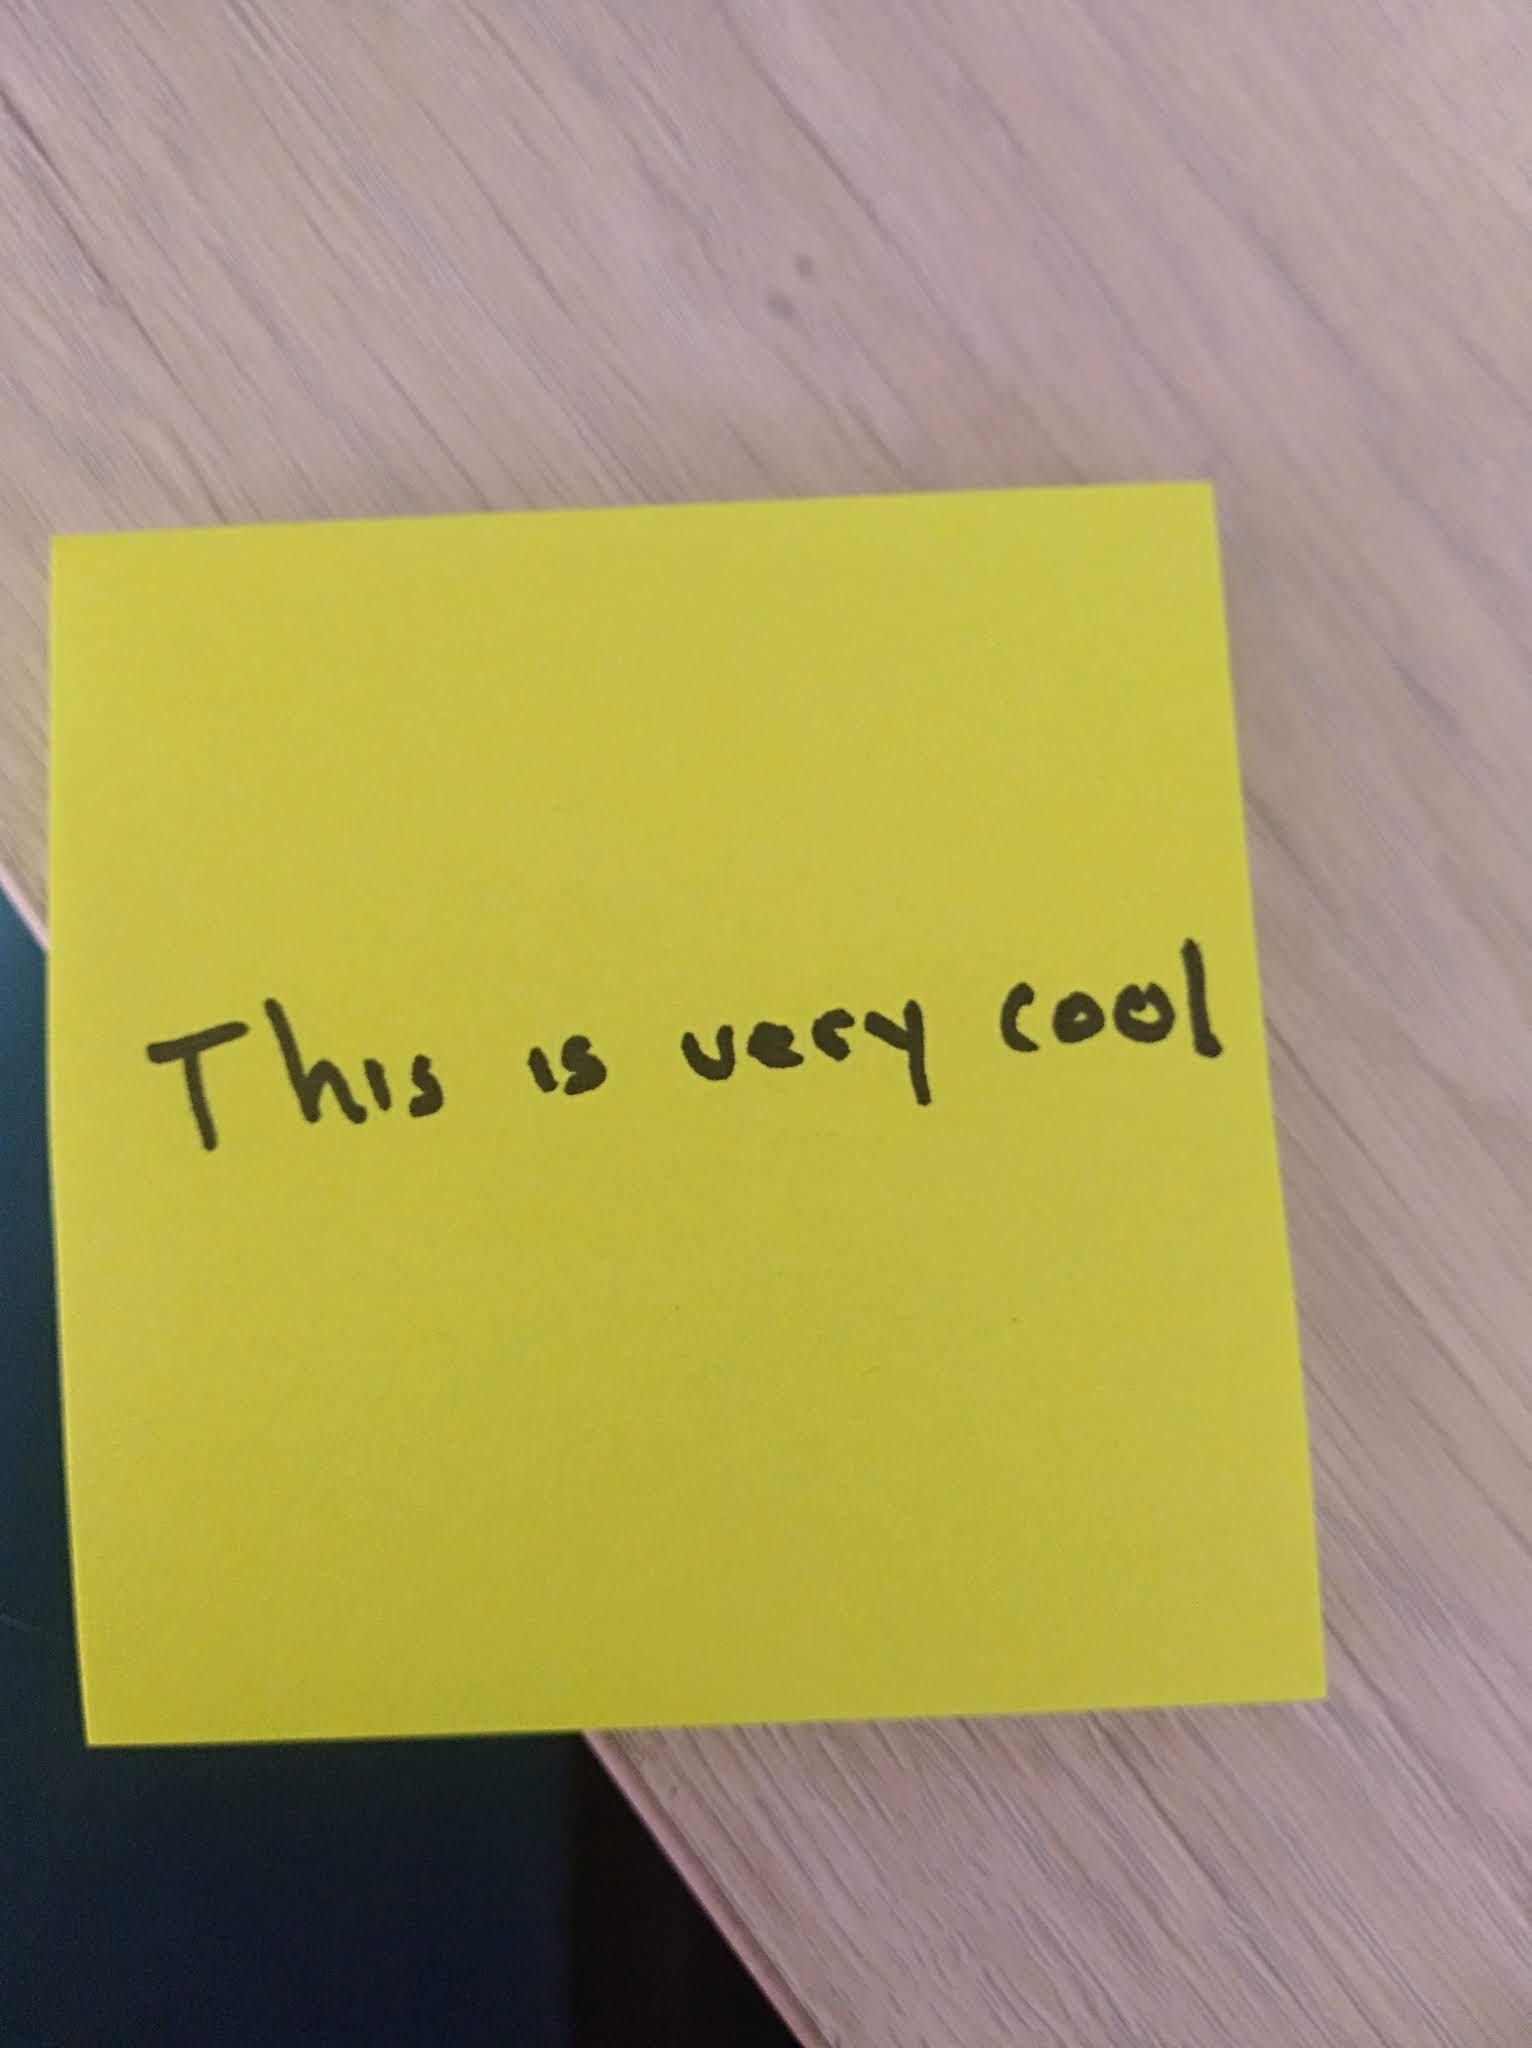 This is very cool